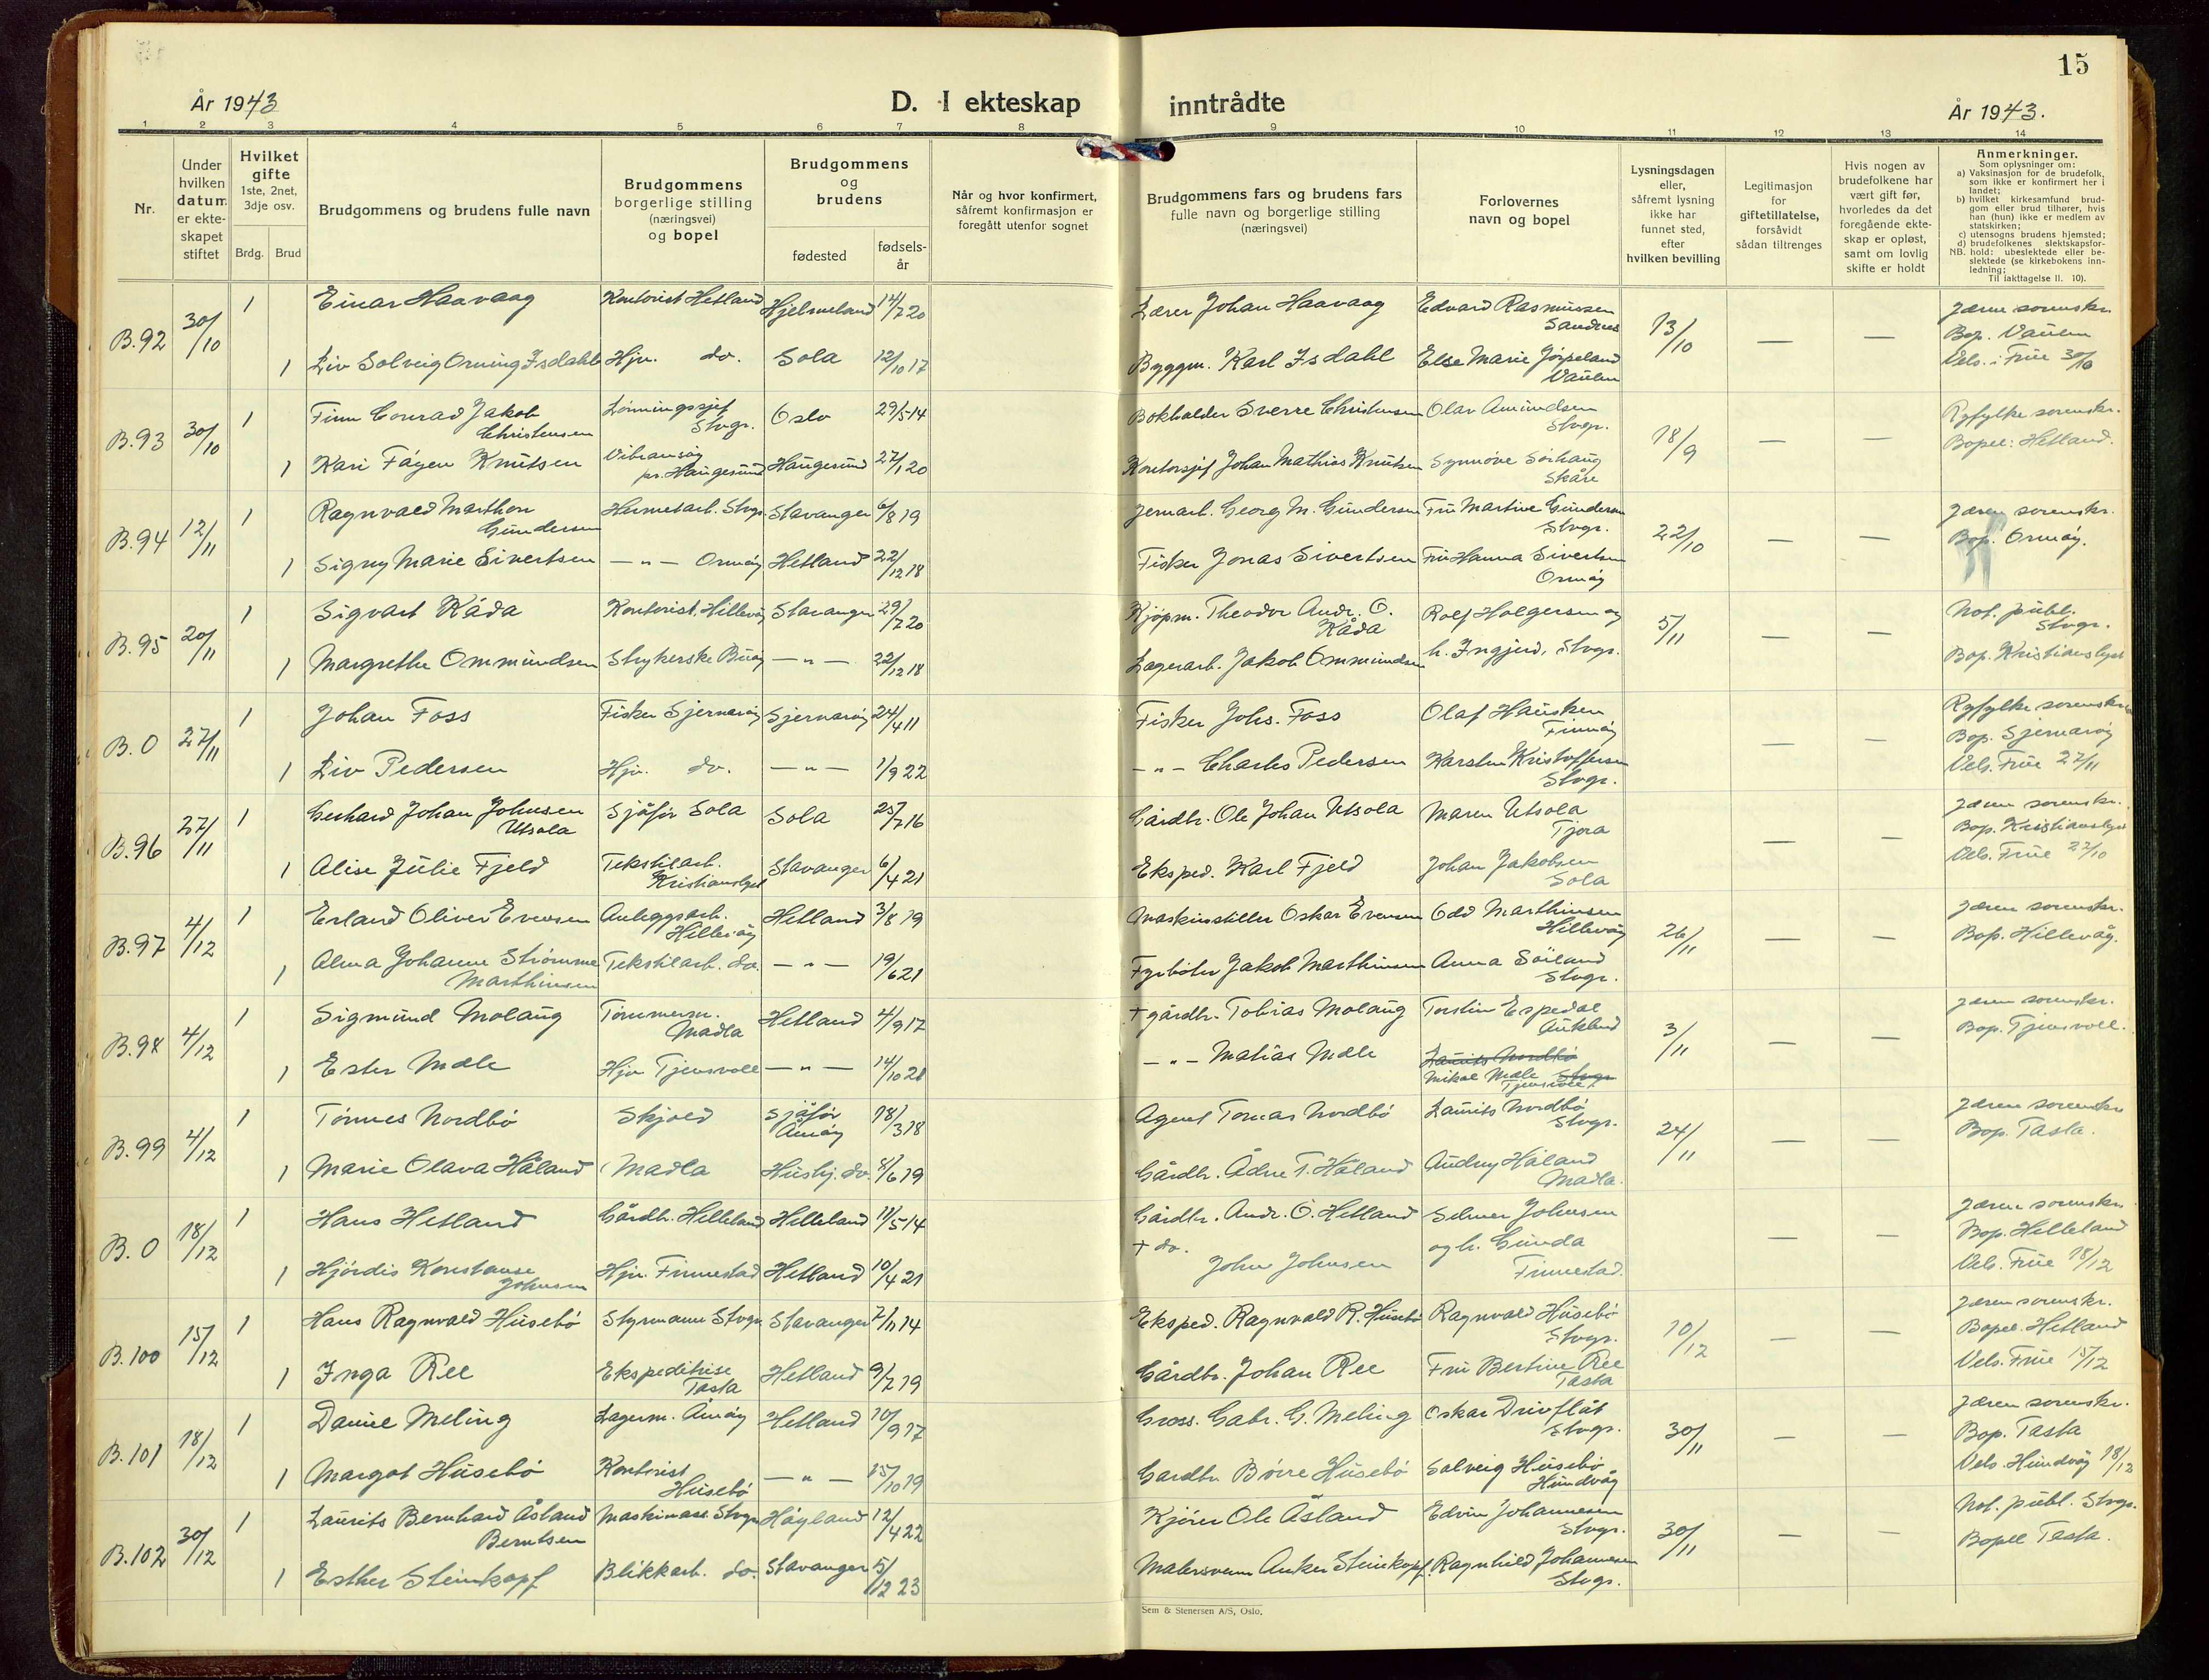 15
År 1943
D. I ekteskap inntrådte
År 1943.
1 2 3 4 5 6 7 8 9 10 11 12 13 14
Nr.
Under hvilken datum er ekteskapet stiftet
Hvilket gifte
1ste, 2net, 3dje osv.
Brdg. Brud
Brudgommens og brudens fulle navn
Brudgommens borgerlige stilling (næringsvei) og bopel
Brudgommens og brudens
fødested
fødsels-år
Når og hvor konfirmert, såfremt konfirmasjon er foregått utenfor sognet
Brudgommens fars og brudens fars fulle navn og borgerlige stilling (næringsvei)
Forlovernes navn og bopel
Lysningsdagen eller, såfremt lysning ikke har funnet sted, efter hvilken bevilling
Legitimasjon for giftetillatelse, forsåvidt sådan tiltrenges
Hvis nogen av brudefolkene har vært gift før, hvorledes da det foregående ekteskap er opløst, samt om lovlig skifte er holdt
Anmerkninger.
Som oplysninger om:
a) Vaksinasjon for de brudefolk, som ikke er konfirmert her i landet;
b) hvilket kirkesamfund brudgom eller brud tilhører, hvis han (hun) ikke er medlem av statskirken;
c) utensogns brudens hjemsted;
d) brudefolkenes slektskapsforhold: ubeslektede eller beslektede (se kirkebokens innledning;
NB. Til iakttagelse II. 10).
B.92 30/10 1 Einar Haavaag Kontorist Hetland Hjelmeland 14/7 20 Lærer Johan Haavaag Edvard Rasmussen Sandnes 13/10 — — Jæren sorenskr.
Bop. Vaulen
1 Liv Solveig Orning Isdahl Hjv. do. Sola 12/10 17 Byggm. Karl Isdahl Else Marie Jørpeland Vaulen Vels. i Frue 30/10
B.93 30/10 1 Finn Conrad Jakob Christensen Lønningssjef Stvgr. Oslo 29/5 14 Bokholder Sverre Christensen Olav Amundsen Stvgr. 18/9 — — Ryfylke sorenskr.
Bopel: Hetland.
1 Kari Fågen Knutsen Vibransøy pr. Haugesund Haugesund 27/1 20 Kontorsjef Johan Mathias Knutsen Synnøve Sørhaug Skåre
B.94 12/11 1 Ragnvald Marthon Gundersen Hermetarb. Stvgr. Stavanger 6/8 19 Jernarb. Georg M. Gundersen Fru Martine Gundersen Stvgr. 22/10 — — Jæren sorenskr.
Bop. Ormøy.
1 Signy Marie Sivertsen — " — Ormøy Hetland 22/12 18 Fisker Jonas Sivertsen Fru Hanna Sivertsen Ormøy
B.95 20/11 1 Sigvart Kåda Kontorist. Hillevåg Stavanger 29/7 20 Kjøpm. Theodor Andr. O. Kåda Rolf Holgersen og 5/11 — — Not. publ. Stvgr.
1 Margrethe Ommundsen Strykerske Buøy — " — 22/12 18 Lagerarb. Jakob Ommundsen h. Ingjerd, Stvgr. Bop. Kristianslyst
B.0 27/11 1 Johan Foss Fisker Sjernarøy Sjernarøy 24/4 11 Fisker Johs. Foss Olaf Hausken Finnøy — — Ryfylke sorenskr.
Bop. Sjernarøy
1 Liv Pedersen Hjv. do. — " — 1/9 22 — " — Charles Pedersen Karsten Kristoffersen Stvgr. Vels. Frue 27/11
B.96 27/11 1 Gerhard Johan Johnsen Utsola Sjåfør Sola Sola 25/7 16 Gårdbr. Ole Johan Utsola Maren Utsola Tjora — — Jæren sorenskr.
Bop. Kristianslyst
1 Alise Julie Fjeld Tekstilarb. Kristianslyst Stavanger 6/4 21 Eksped. Karl Fjeld Johan Jakobsen Sola Vels. Frue 27/10
B.97 4/12 1 Erland Oliver Evensen Anleggsarb. Hillevåg Hetland 3/8 19 Maskinstiller Oskar Evensen Odd Marthinsen Hillevåg 26/11 — — Jæren sorenskr.
Bop. Hillevåg.
1 Alma Johanne Strømme Marthinsen Tekstilarb. do. — " — 19/6 21 Fyrbøter Jakob Marthinsen Anna Söiland Stvgr.
B.98 4/12 1 Sigmund Molaug Tømmerm. Madla Hetland 4/9 17 + gårdbr. Tobias Molaug Torstein Espedal Aukland 3/11 — — Jæren sorenskr.
Bop. Tjensvoll.
1 Ester Mæle Hjv. Tjensvoll — " — 14/10 21 — " — Matias Mæle Laurits Nordbø Stvgr. Mikal Mæle Tjensvoll.
B.99 4/12 1 Tønnes Nordbö Skjold Sjåfør Åmøy 18/3 18 Agent Tomas Nordbö Laurits Nordbö Stvgr. 24/11 — — Jæren sorenskr.
Bop. Tasta.
1 Marie Olava Håland Madla Husbj. do. 8/6 19 Gårdbr. Ådne T. Håland Audny Håland Madla.
B.0 18/12 1 Hans Hetland Gårdbr. Helleland Helleland 11/5 14 Gårdbr. Andr. O. Hetland Selmer Johnsen — — Jæren sorenskr.
Bop. Helleland
1 Hjördis Konstanse Johnsen Hjv. Finnestad Hetland 10/4 21 + do. John Johnsen og h. Gunda Finnestad. Vels. Frue 18/12
B.100 15/12 1 Hans Ragnvald Husebö Styrmann Stvgr. Stavanger 7/11 14 Eksped. Ragnvald R. Husebö Ragnvald Husebö Stvgr. 10/12 — — Jæren sorenskr.
Bopel. Hetland
1 Inga Ree Ekspeditrise Tasta Hetland 9/7 19 Gårdbr. Johan Ree Fru Bertine Ree Tasta Vels. Frue 15/12
B.101 18/12 1 Daniel Meling Lagerm. Åmøy Hetland 10/9 17 Gross. Gabr. G. Meling Oskar Drivflåt Stvgr. 30/11 — — Jæren sorenskr.
Bop. Tasta
1 Margot Husebö Kontorist Husebö — " — 15/10 19 Gardbr. Børre Husebö Solveig Husebö Hundvåg Vels. Hundvåg 18/12
B.102 30/12 1 Laurits Bernhard Åsland Berntsen Maskinass. Stvgr. Höyland 12/4 22 Kjörer Ole Åsland Edvin Johannesen Stvgr. 30/11 — — Not. publ. Stvgr.
Bopel Tasta.
1 Esther Steinkopf Blikkarb. do. Stavanger 5/12 23 Malersvenn Anker Steinkopf. Ragnhild Johannesen Stvgr.
Sem & Stenersen A/S, Oslo.